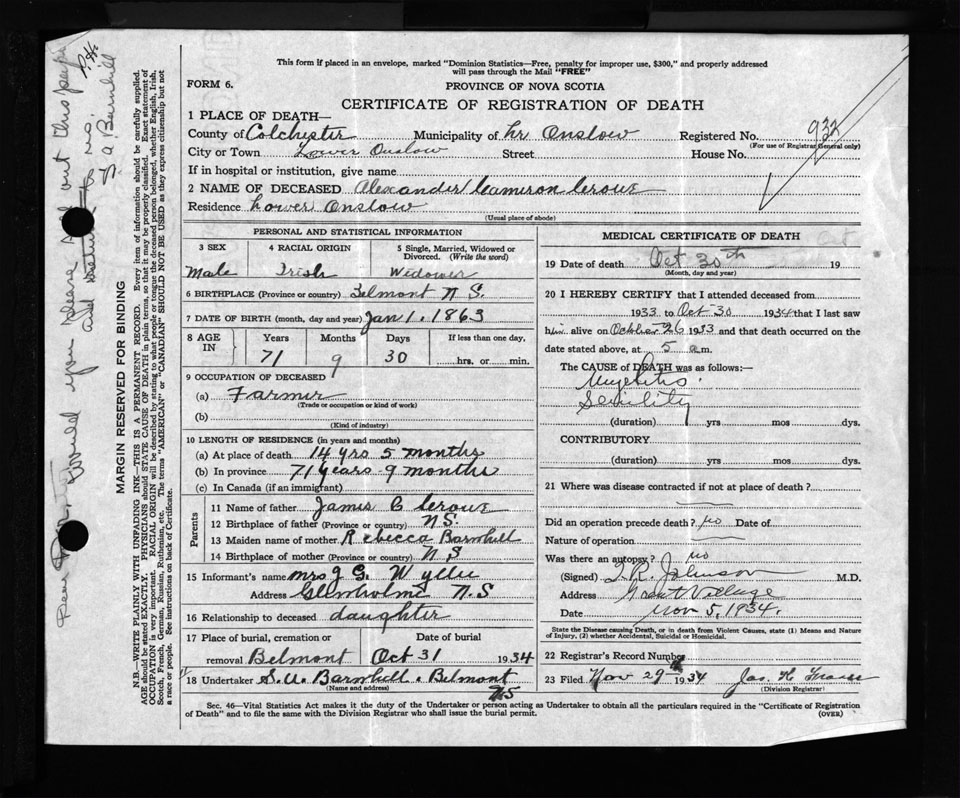 This form if placed in an envelope, marked "Dominion Statistics—Free, penalty for improper use, $300," and properly addressed
will pass through the Mail "FREE"
FORM 6.
PROVINCE OF NOVA SCOTIA
CERTIFICATE OF REGISTRATION OF DEATH
1 PLACE OF DEATH—
County of Colchester Municipality of Lr Onslow Registered No. 932
(For use of Registrar General only)
City or Town Lower Onslow Street House No.
If in hospital or institution, give name
2 NAME OF DECEASED Alexander Cameron Crowe
Residence Lower Onslow
(Usual place of abode)
PERSONAL AND STATISTICAL INFORMATION
3 SEX 4 RACIAL ORIGIN 5 Single, Married, Widowed or Divorced. (Write the word)
Male Irish Widower
6 BIRTHPLACE (Province or country) Belmont N S.
7 DATE OF BIRTH (month, day and year) Jan 1. 1863
8 AGE IN Years Months Days If less than one day,
71 9 30 hrs. or min.
9 OCCUPATION OF DECEASED
(a) Farmer
(Trade or occupation or kind of work)
(b)
(Kind of industry)
10 LENGTH OF RESIDENCE (in years and months)
(a) At place of death 14 yrs 5 months
(b) In province 71 years 9 months
(c) In Canada (if an immigrant)
Parents
11 Name of father James C Crowe
12 Birthplace of father (Province or country) N S.
13 Maiden name of mother Rebecca Barnhill
14 Birthplace of mother (Province or country) N S
15 Informant's name Mrs J G. Wyllie
Address Glenholme N. S
16 Relationship to deceased daughter
17 Place of burial, cremation or removal Belmont Date of burial Oct 31 1934
18 Undertaker S. A. Barnhill. Belmont
(Name and address) NS
MEDICAL CERTIFICATE OF DEATH
19 Date of death Oct 30th 19
(Month, day and year)
20 I HEREBY CERTIFY that I attended deceased from
1933 to Oct 30 1934 that I last saw
him alive on October 26 1933 and that death occurred on the
date stated above, at 5 a.m.
The CAUSE of DEATH was as follows:—
Myelitis.
Senility
(duration) 1 yrs mos dys.
CONTRIBUTORY
(duration) yrs mos dys.
21 Where was disease contracted if not at place of death?
Did an operation precede death? no Date of
Nature of operation
Was there an autopsy? no
(Signed) T. R. Johnson M.D.
Address Great Village
Date Nov 5, 1934.
State the Disease causing Death, or in death from Violent Causes, state (1) Means and Nature
of Injury, (2) whether Accidental, Suicidal or Homicidal.
22 Registrar's Record Number
23 Filed Nov 29th 1934 Jas. H
(Division Registrar)
Sec. 46—Vital Statistics Act makes it the duty of the Undertaker or person acting as Undertaker to obtain all the particulars required in the "Certificate of Registration
of Death" and to file the same with the Division Registrar who shall issue the burial permit.
(OVER)
MARGIN RESERVED FOR BINDING
N.B.—WRITE PLAINLY WITH UNFADING INK—THIS IS A PERMANENT RECORD. Every item of information should be carefully supplied.
AGE should be stated EXACTLY. PHYSICIANS should STATE CAUSE OF DEATH in plain terms, so that it may be properly classified. Exact statement of
OCCUPATION is very important. RACIAL ORIGIN will be described by stating to what people or tongue the deceased person belonged, whether English, Irish,
Scotch, French, German, Russian, Ruthenian, etc. The terms "AMERICAN" or "CANADIAN" SHOULD NOT BE USED as they express citizenship but not
a race or people. See instructions on back of Certificate.
would you please out this paper
and return to me.
S A Barnhill